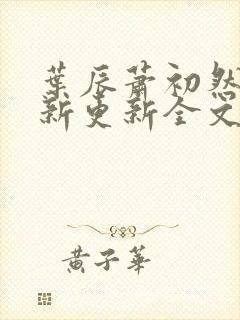 葉辰蕭初然
新更新全文
黃子華